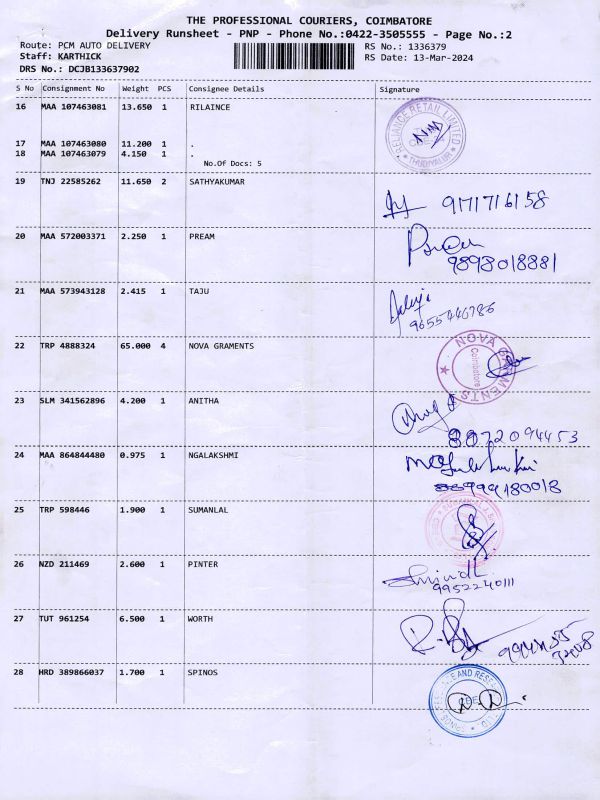 THE PROFESSIONAL COURIERS, COIMBATORE
Delivery Runsheet - PNP - Phone No.:0422-3505555 - Page No.:2
Route: PCM AUTO DELIVERY RS No.: 1336379
Staff: KARTHICK RS Date: 13-Mar-2024
DRS No.: DCJB133637902
S No Consignment No Weight PCS Consignee Details Signature
16 MAA 107463081 13.650 1 RILAINCE
RELIANCE RETAIL LIMITED
THUDIYALUR
17 MAA 107463080 11.200 1 .
18 MAA 107463079 4.150 1 .
No.Of Docs: 5
19 TNJ 22585262 11.650 2 SATHYAKUMAR
9171716158
20 MAA 572003371 2.250 1 PREAM
9898018881
21 MAA 573943128 2.415 1 TAJU
9655446786
22 TRP 4888324 65.000 4 NOVA GRAMENTS
NOVA GARMENTS
Coimbatore
23 SLM 341562896 4.200 1 ANITHA
8072094453
24 MAA 864844480 0.975 1 NGALAKSHMI
9994180018
25 TRP 598446 1.900 1 SUMANLAL
26 NZD 211469 2.600 1 PINTER
9952240111
27 TUT 961254 6.500 1 WORTH
28 HRD 389866037 1.700 1 SPINOS